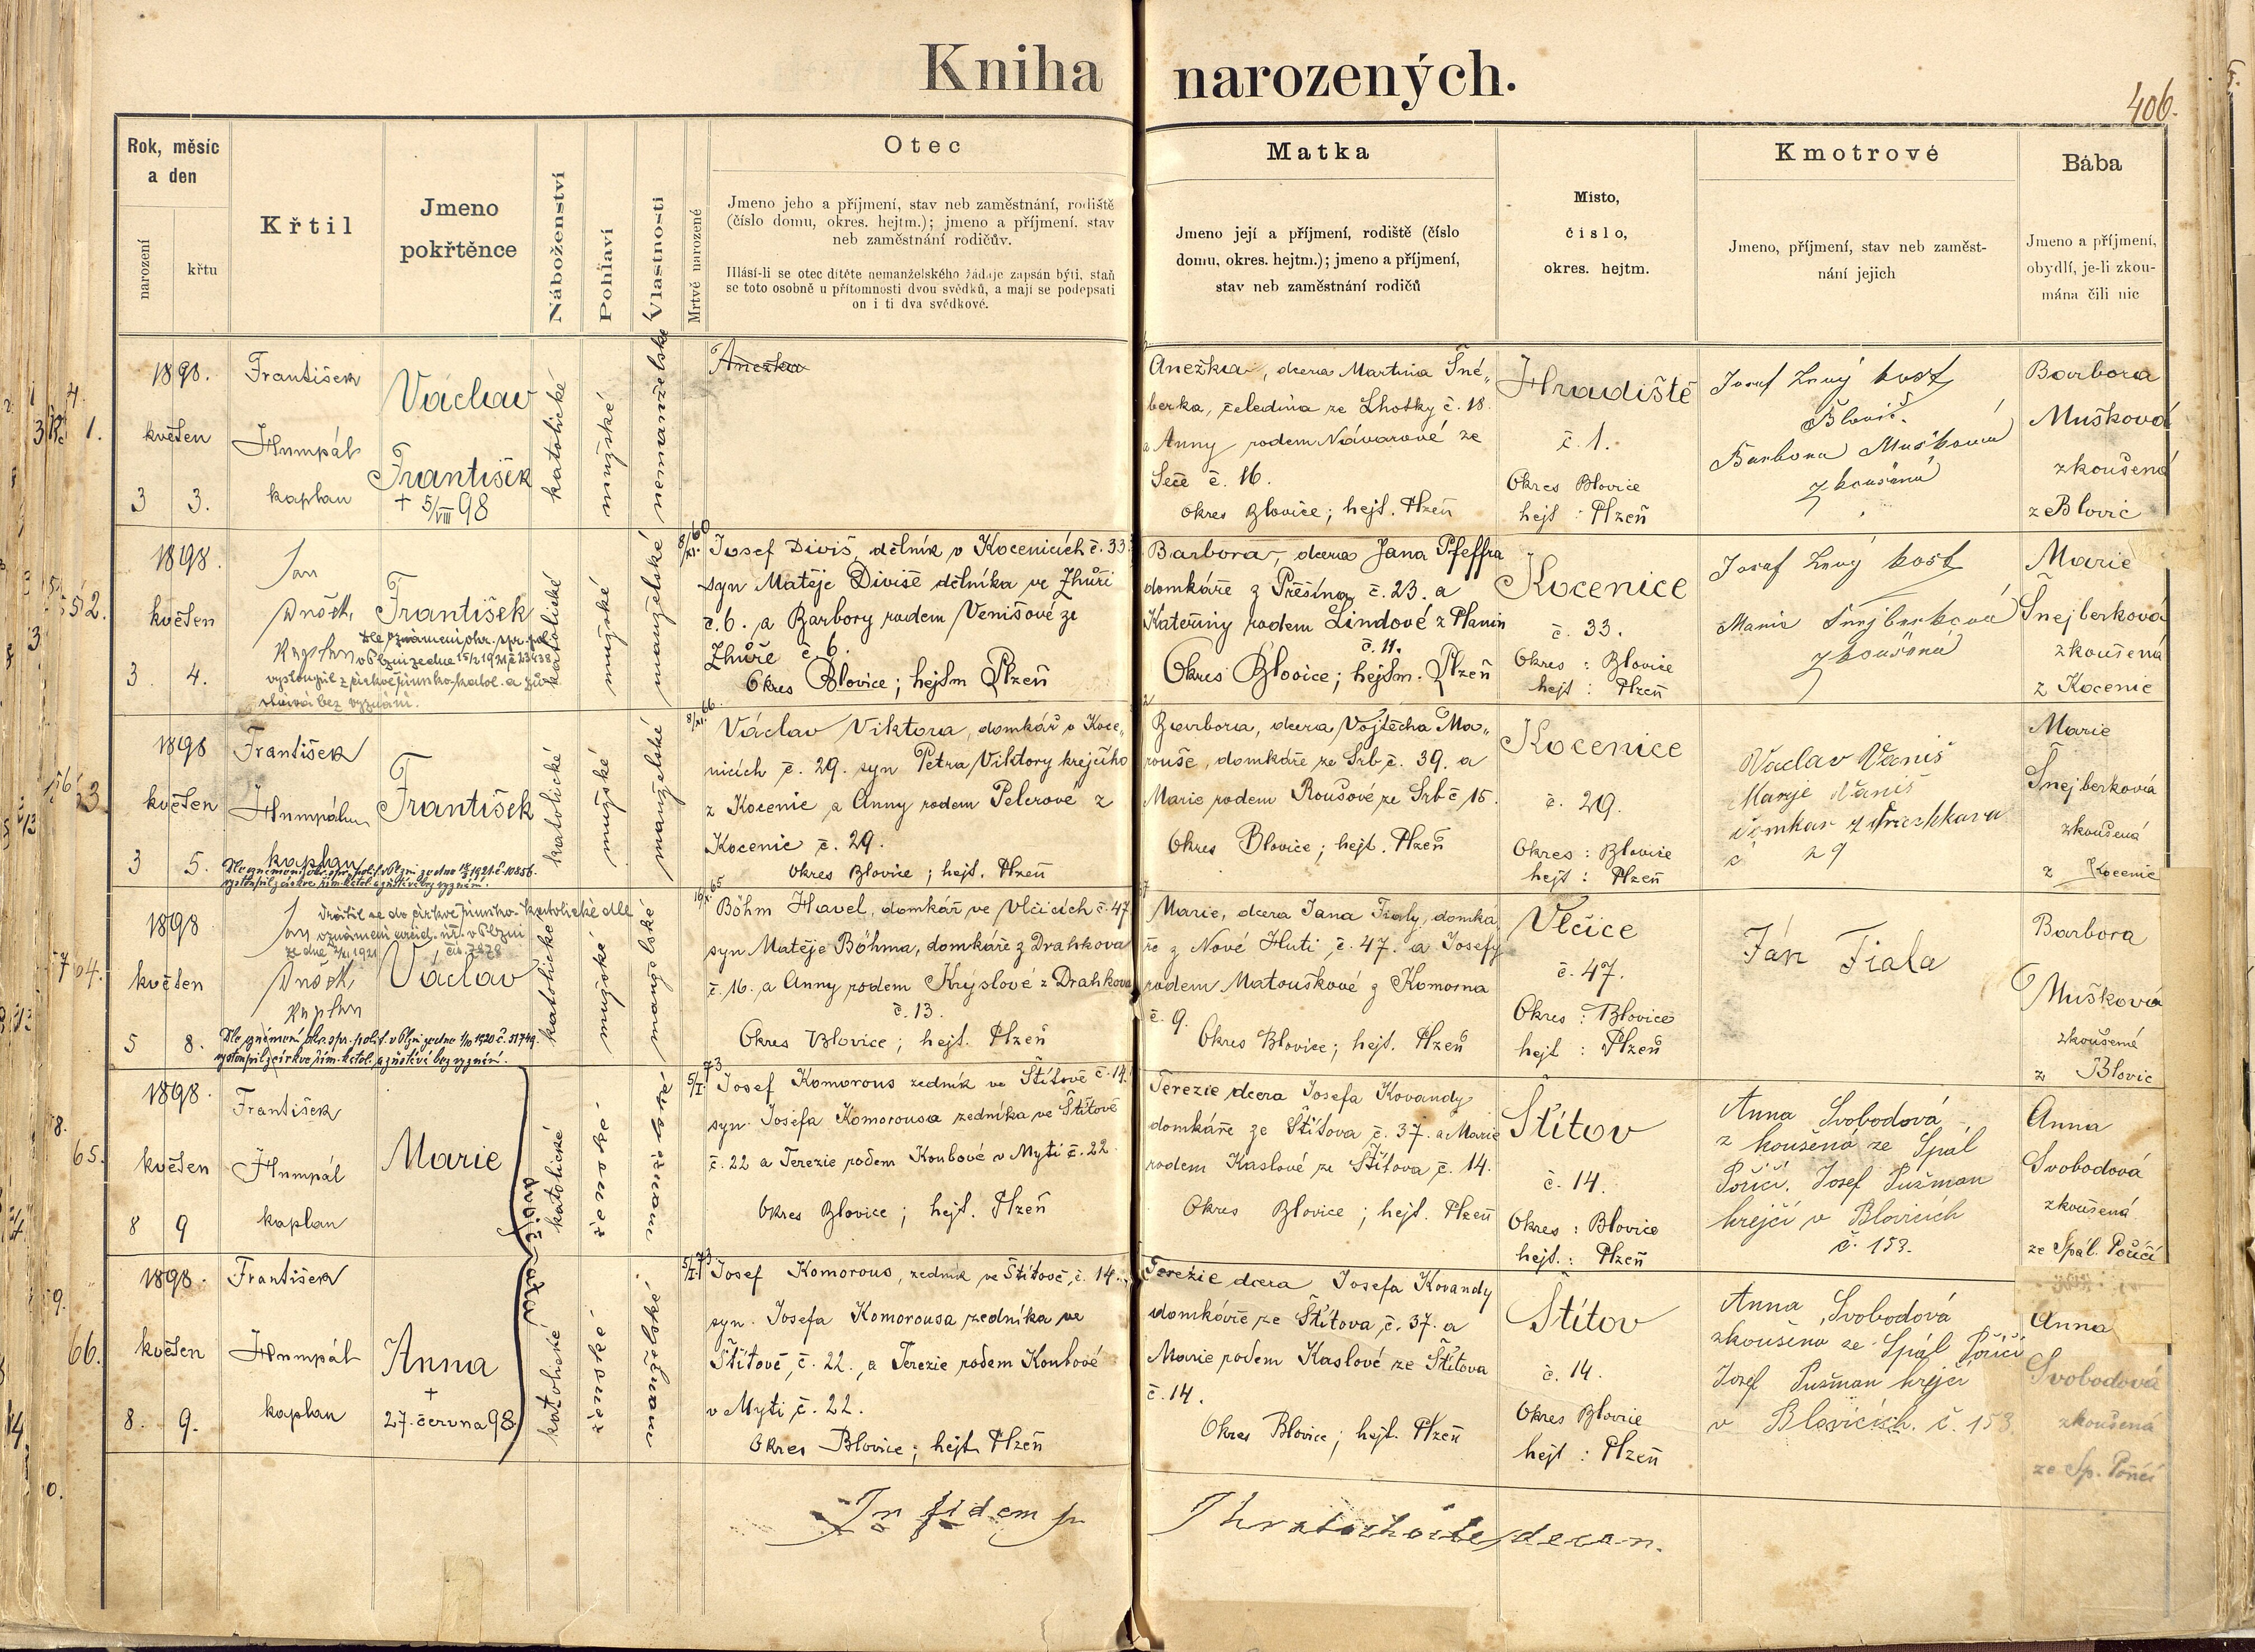 Kniha narozených.
406.
Rok, měsíc
a den
narození
křtu
Křtil
Jmeno
pokřtěnce
Náboženství
Pohlaví
Vlastnosti
Mrtvě narozené
Otec
Jmeno jeho a příjmení, stav neb zaměstnání, rodiště
(číslo domu, okres. hejtm.); jmeno a příjmení, stav
neb zaměstnání rodičův.
Hlásí-li se otec dítěte nemanželského žádaje zapsán býti, staň
se toto osobně u přítomnosti dvou svědků, a mají se podepsati
on i ti dva svědkové.
Matka
Jmeno její a příjmení, rodiště (číslo
domu, okres. hejtm.); jmeno a příjmení,
stav neb zaměstnání rodičů
Místo,
číslo,
okres. hejtm.
Kmotrové
Jmeno, příjmení, stav neb zaměst-
nání jejich
Bába
Jmeno a příjmení,
obydlí, je-li zkou-
mána čili nic
1898.
květen
3 3.
František
Humpál
kaplan
Václav
František
+ 5/VIII 98
katolické
mužské
nemanželské
Anežka
Anežka, dcera Martina Šné„
berka, čeledína ze Lhotky č. 18.
a Anny rodem Návarové ze
Seče č. 16.
okres Blovice; hejt. Plzeň
Hradiště
č. 1.
Okres Blovice
hejt : Plzeň
Josef
Barbora Mušková
zkoušená
Barbora
Mušková
zkoušená
z Blovic
52.
1898.
květen
3. 4.
Jan
František
Dle oznámení okr. spr. pol.
v Plzni ze dne 15/2 1921 č 23438
vystoupil z církve římsko-katol. a zů-
stává bez vyznání.
katolické
mužské
manželské
8/XI. 60
Josef Diviš, dělník v Kocenicích č. 33.
syn Matěje Diviše dělníka ve Zhůři
č. 6. a Barbory rodem Venišové ze
Zhůře č. 6.
Okres Blovice; hejtm Plzeň
Barbora, dcera Jana Pfeffra
domkáře z Přešína č. 23. a
Kateřiny rodem Lindové z Planin
č. 11.
Okres Blovice; hejtm. Plzeň
Kocenice
č. 33.
Okres : Blovice
hejt : Plzeň
Josef
Marie Šnejberková
zkoušená
Marie
Šnejberková
zkoušená
z Kocenic
1898
květen
3 5.
František
Humpál
kaplan
František
vystoupil z církve řím. katol. a zůstává bez vyznání.
katolické
mužské
manželské
8/XI. 66.
Václav Viktora, domkář v Koce„
nicích č. 29. syn Petra Viktory krejčího
z Kocenic a Anny rodem Pelcrové z
Kocenic č. 29.
okres Blovice ; hejt. Plzeň
Barbora, dcera Vojtěcha Ma„
rouše, domkáře ze Srb č. 39. a
Marie rodem Roušové ze Srb č 15.
Okres Blovice ; hejt. Plzeň
Kocenice
č. 29.
Okres : Blovice
hejt : Plzeň
Vaclav Vaniš
Marje Vaniš
Marie
Šnejberková
zkoušená
z Kocenic
64.
1898
květen
5 8.
Jan
Vrátil se do církve římsko-katolické dle
Václav
vystoupil z církve řím. katol. a zůstává bez vyznání.
katolické
mužské
manželské
65
Böhm Havel, domkář ve Vlčicích č. 47
syn Matěje Böhma, domkáře z Drahkova
č. 16. a Anny rodem Kryslové z Drahkova
č. 13.
Okres Blovice; hejt. Plzeň
Marie, dcera Jana Fialy, domká
ře z Nové Huti č. 47. a Josefy
rodem Matouškové z Komorna
č. 9.
Okres Blovice; hejt. Plzeň
Vlčice
č. 47.
Okres : Blovice
hejt : Plzeň
Ján Fiala
Barbora
Mušková
zkoušené
z Blovic
65.
1898.
květen
8 9
František
Humpál
kaplan
Marie
dvojčata
katolické
ženské
manželské
5/I 73
Josef Komorous zedník ve Štítově č. 14.
syn Josefa Komorousa zedníka ve Štítově
č. 22 a Terezie rodem Koubové v Mýti č. 22.
Okres Blovice ; hejt. Plzeň
Terezie dcera Josefa Kovandy
domkáře ze Štítova č. 37. a Marie
rodem Kaslové ze Štítova č. 14.
Okres Blovice ; hejt. Plzeň
Štítov
č. 14.
Okres : Blovice
hejt. : Plzeň
Anna Svobodová
zkoušená ze Spál
Poříčí. Josef Pužman
krejčí v Blovicích
č. 153.
Anna
Svobodová
zkoušená
ze Spál. Poříčí
66.
1898.
květen
8. 9.
František
Humpál
kaplan
Anna
+
27. června 98.
katolické
ženské
manželské
5/I 73
Josef Komorous, zedník ve Štítově, č. 14.
syn Josefa Komorousa zedníka ve
Štítově, č. 22., a Terezie rodem Koubové
v Mýti č. 22.
Okres Blovice; hejt. Plzeň
Terezie dcera Josefa Kovandy
domkáře ze Štítova č. 37. a
Marie rodem Kaslové ze Štítova
č. 14.
Okres Blovice; hejt. Plzeň
Štítov
č. 14.
Okres Blovice
hejt : Plzeň
Anna Svobodová
zkoušena ze Spál Poříčí
Josef Pužman krejčí
v Blovicích. č. 153.
Anna
Svobodová
zkoušená
ze Sp. Poříčí
In fidem